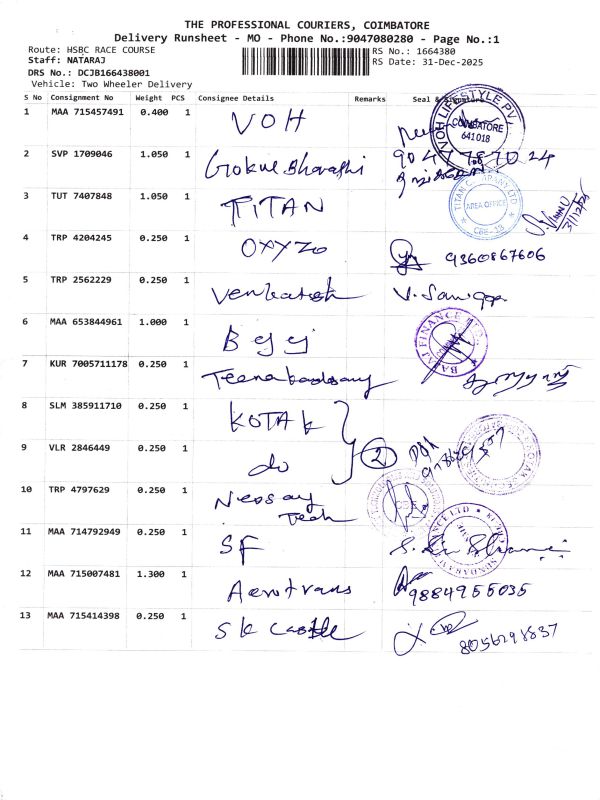 THE PROFESSIONAL COURIERS, COIMBATORE
Delivery Runsheet - MO - Phone No.:9047080280 - Page No.:1
Route: HSBC RACE COURSE
RS No.: 1664380
Staff: NATARAJ
RS Date: 31-Dec-2025
DRS No.: DCJB166438001
Vehicle: Two Wheeler Delivery
S No Consignment No Weight PCS Consignee Details Remarks Seal & Signature
1 MAA 715457491 0.400 1 VOH
VOH LIFESTYLE PV
COIMBATORE
641018
2 SVP 1709046 1.050 1 Gokul Bharathi
3 TUT 7407848 1.050 1 TITAN
TITAN COMPANY LTD
AREA OFFICE
CBE-18
31/12/25
4 TRP 4204245 0.250 1 OXYZO 9360867606
5 TRP 2562229 0.250 1 Venkatesh
6 MAA 653844961 1.000 1 Bajaj
BAJAJ FINANCE
7 KUR 7005711178 0.250 1
8 SLM 385911710 0.250 1 KOTAK
9 VLR 2846449 0.250 1 do 2
10 TRP 4797629 0.250 1 Tech
11 MAA 714792949 0.250 1 SF
12 MAA 715007481 1.300 1 Aerotrans 9884955035
13 MAA 715414398 0.250 1 SK Castle 8056298837